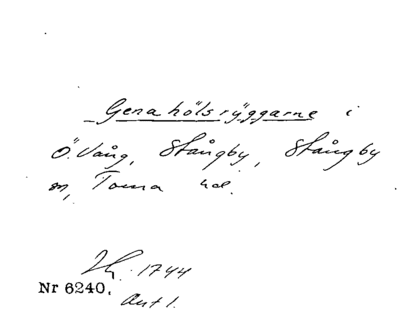 Genahölsryggarne i
Ö. Vång, Stångby, Stångby
sn, Torna hd.
1744
Nr 6240.
Akt 1.